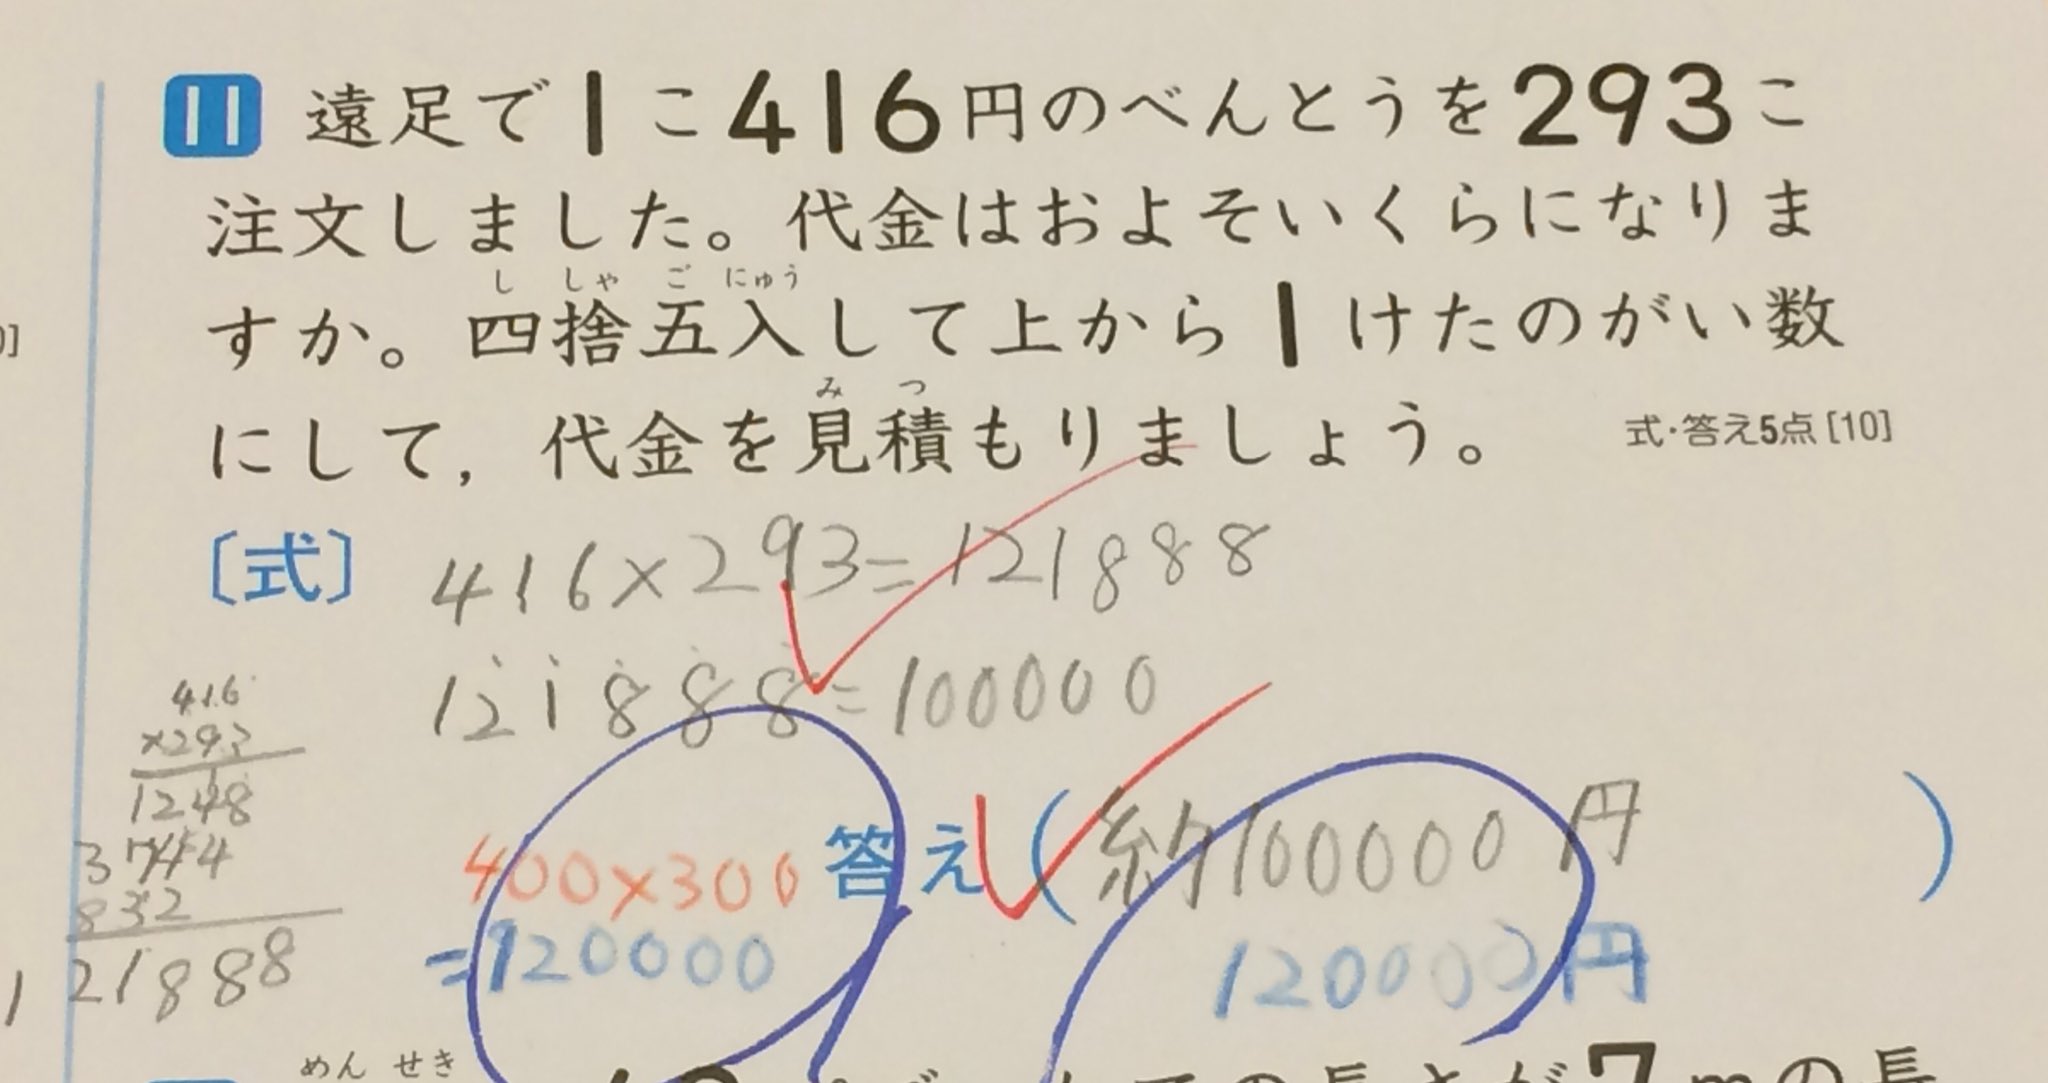 11 遠足で1こ416円のべんとうを293こ
注文しました。代金はおよそいくらになりま
すか。四捨五入して上から1けたのがい数
し しゃ ご にゅう
にして,代金を見積もりましょう。 式・答え5点[10]
み つ
0]
〔式〕 416×293=121888
121888=100000
416
×293
1248
3744
832
121888
400×300
=120000
答え(約100000円)
120000円
めん せき